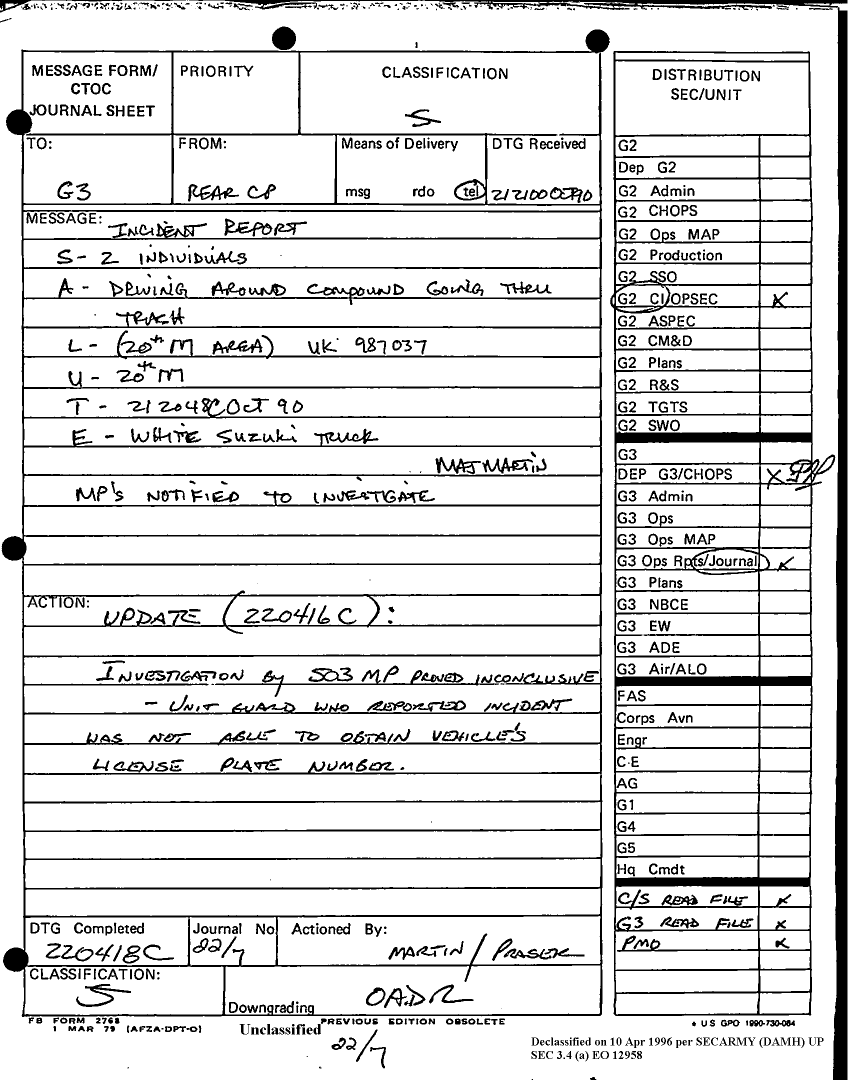 1
MESSAGE FORM/
CTOC
JOURNAL SHEET
PRIORITY
CLASSIFICATION
S
TO:
G3
FROM:
REAR CP
Means of Delivery
msg rdo tel
DTG Received
212100COCT90
MESSAGE: INCIDENT REPORT
S - 2 INDIVIDUALS
A - DRIVING AROUND COMPOUND GOING THRU
TRASH
L - (20th M AREA) UK 987037
U - 20th M
T - 212048C Oct 90
E - WHITE SUZUKI TRUCK
MAJ MARTIN
MP's NOTIFIED TO INVESTIGATE
ACTION: UPDATE (220416C):
INVESTIGATION By 503 MP PROVED INCONCLUSIVE
- UNIT GUARD WHO REPORTED INCIDENT
WAS NOT ABLE TO OBTAIN VEHICLE'S
LICENSE PLATE NUMBER.
DTG Completed
220418C
Journal No
22/7
Actioned By:
MARTIN / FRASER
CLASSIFICATION:
S
Downgrading OADR
FB FORM 2768
1 MAR 79 (AFZA-DPT-O)
Unclassified
PREVIOUS EDITION OBSOLETE
22/7
DISTRIBUTION
SEC/UNIT
G2
Dep G2
G2 Admin
G2 CHOPS
G2 Ops MAP
G2 Production
G2 SSO
G2 CI/OPSEC X
G2 ASPEC
G2 CM&D
G2 Plans
G2 R&S
G2 TGTS
G2 SWO
G3
DEP G3/CHOPS X
G3 Admin
G3 Ops
G3 Ops MAP
G3 Ops Rpts/Journal X
G3 Plans
G3 NBCE
G3 EW
G3 ADE
G3 Air/ALO
FAS
Corps Avn
Engr
C-E
AG
G1
G4
G5
Hq Cmdt
C/S READ FILE X
G3 READ FILE X
PMO X
* US GPO 1990-730-084
Declassified on 10 Apr 1996 per SECARMY (DAMH) UP
SEC 3.4 (a) EO 12958